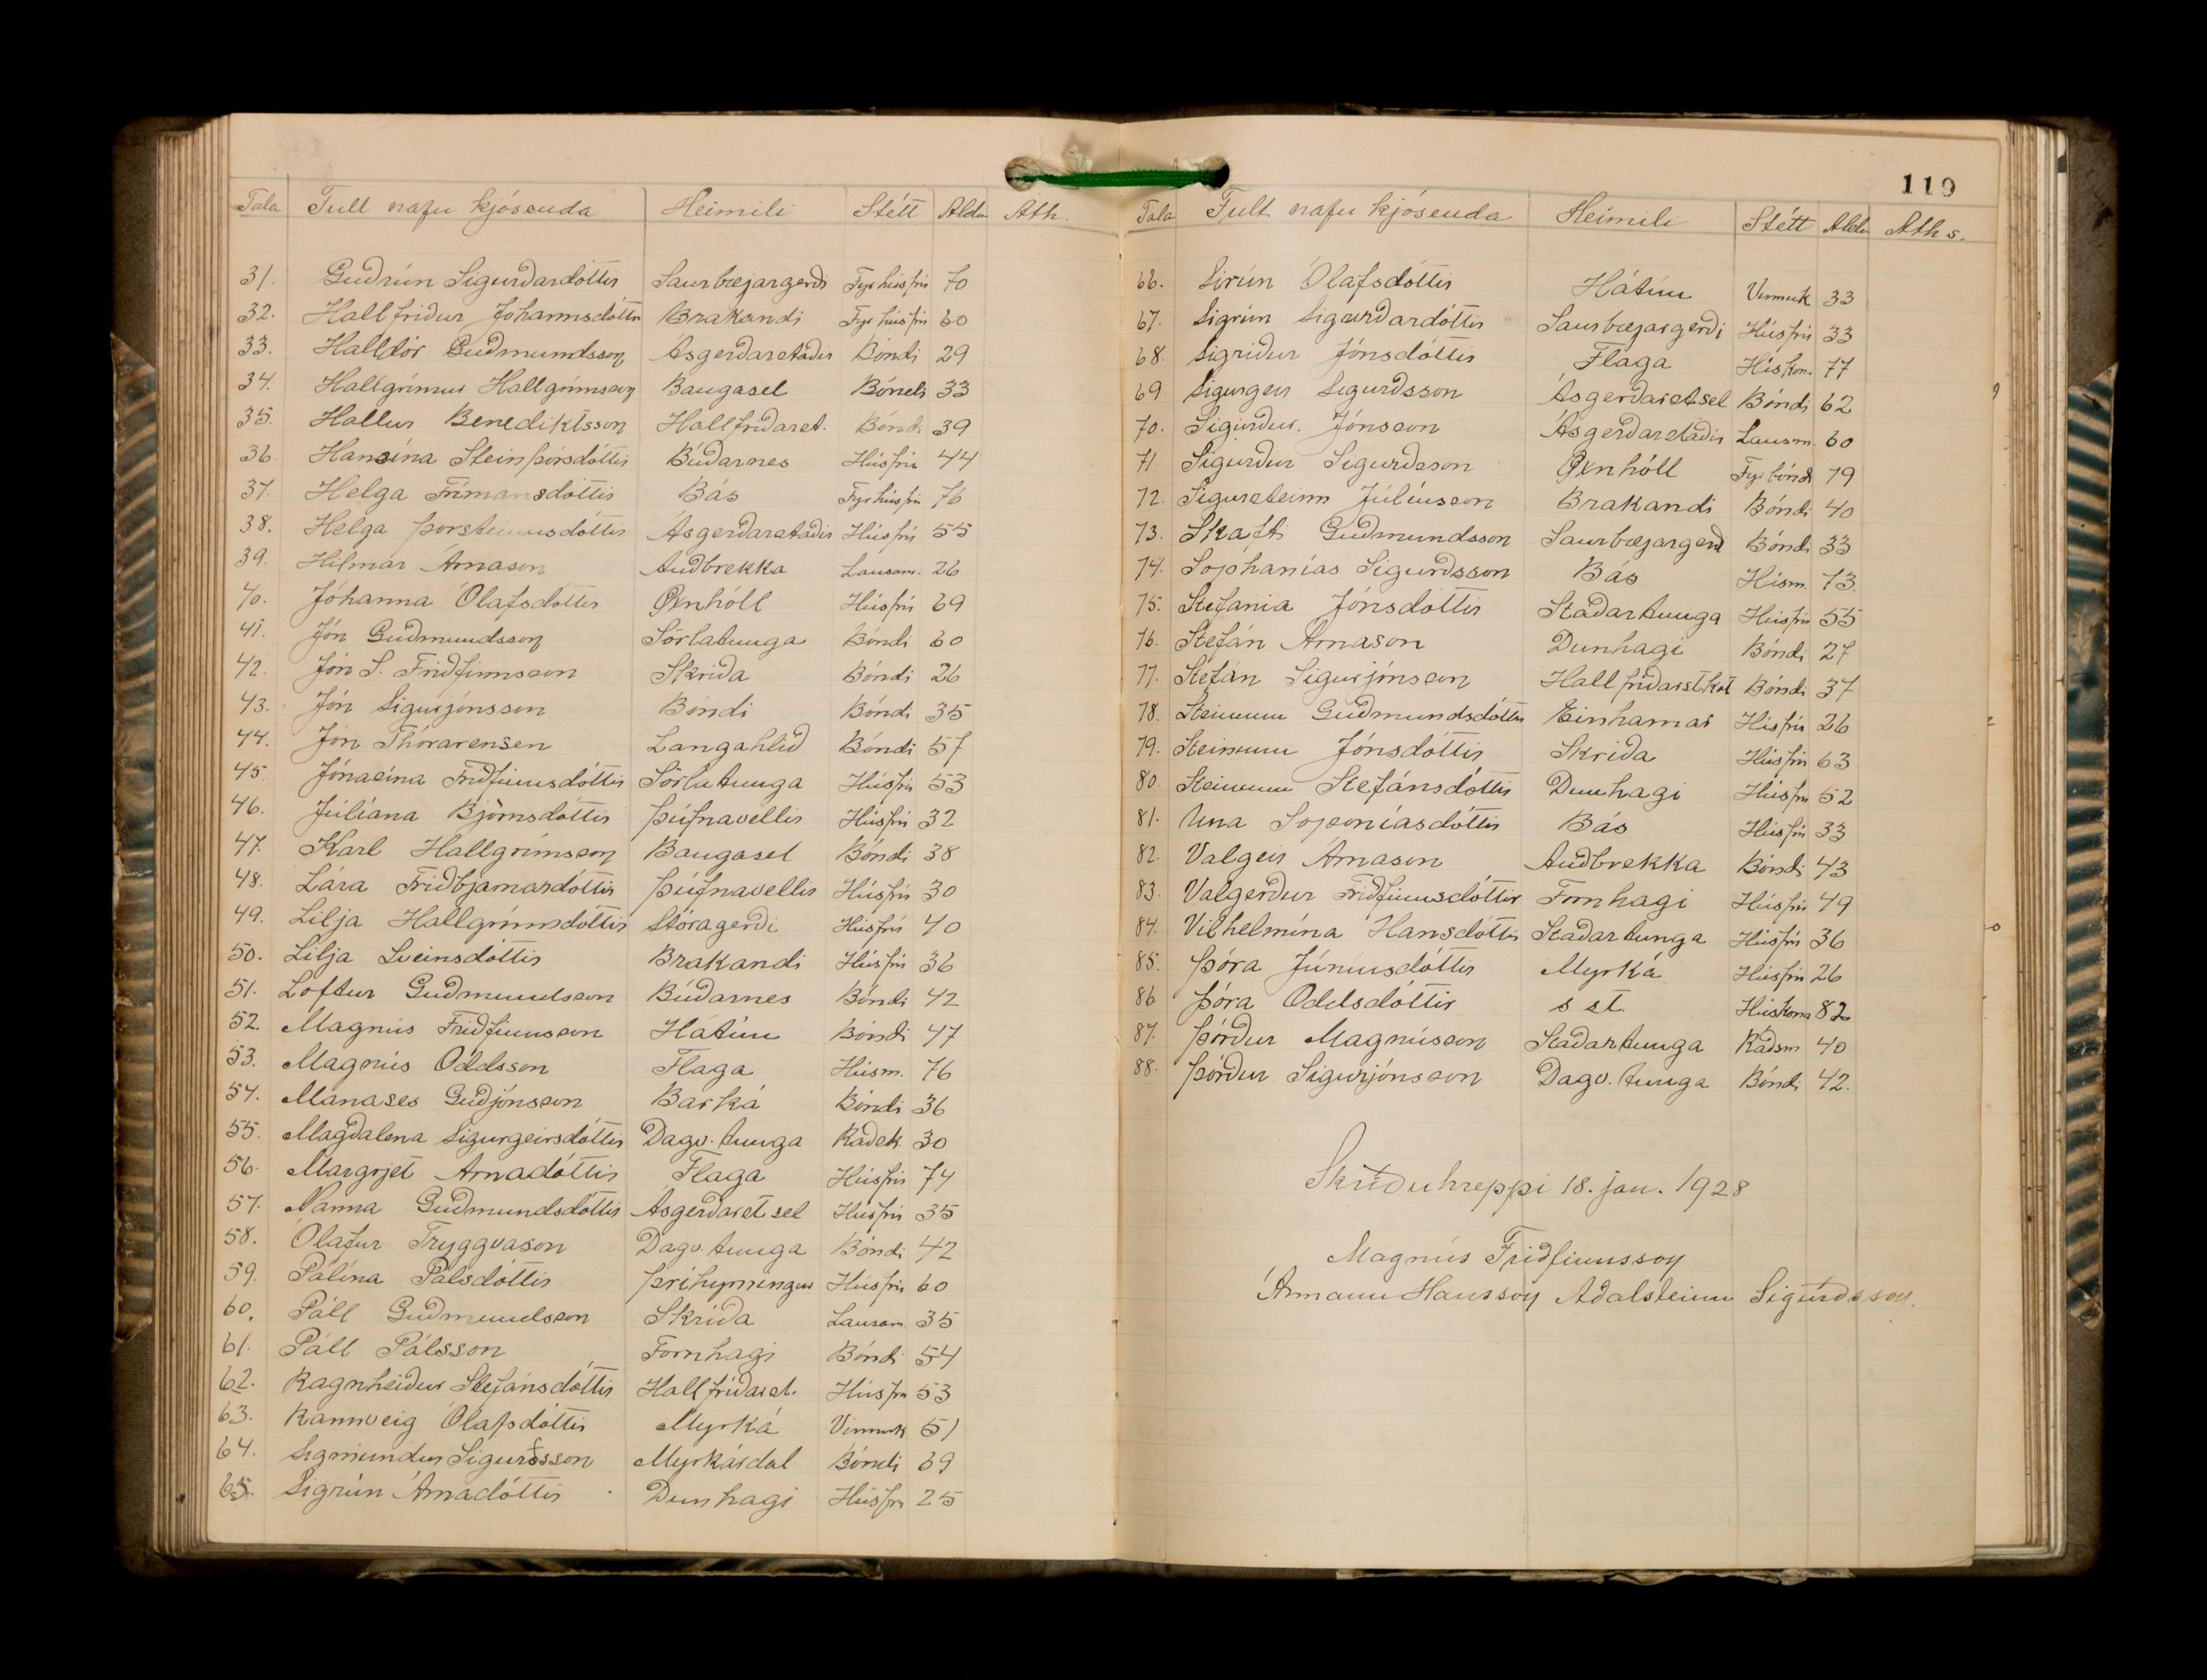 Tala Fult nafn kjósenda Heimili Stétt Aldur Ath.
31. Guðrún Sigurðardóttir Saurbæjargerði Fyr húsfrú 70
32. Hallfríður Jóhannsdóttir Brakandi Fyr húsfrú 60
33. Halldór Guðmundsson Ásgerðarstaðir Bóndi 29
34. Hallgrímur Hallgrímsson Baugasel Bóndi 33
35. Hallur Benediktsson Hallfríðarst. Bóndi 39
36 Hansína Steinþórsdóttir Búðarnes Húsfrú 44
37. Helga Frímansdóttir Bás Fyr húsfrú 76
38. Helga Þorsteinnsdóttir Ásgerðarstaðir Húsfrú 55
39. Hilmar Árnason Auðbrekka Lausam. 26
40. Jóhanna Ólafsdóttir Öxnhóll Húsfrú 69
41. Jón Guðmundsson Sörlatunga Bóndi 60
42. Jón S. Friðfinnsson Skriða Bóndi 26
43. Jón Sigurjónsson Bóndi Bóndi 35
44. Jón Thórarensen Langahlíð Bóndi 57
45. Jónasína Friðfinnsdóttir Sörlatunga Húsfrú 53
46. Júlíana Björnsdóttir Þúfnavellir Húsfrú 32
47. Karl Hallgrímsson Baugasel Bóndi 38
48. Lára Friðbjarnardóttir Þúfnavellir Húsfrú 30
49. Lilja Hallgrímsdóttir Stóragerði Húsfrú 40
50. Lilja Sveinsdóttir Brakandi Húsfrú 36
51. Loftur Guðmundsson Búðarnes Bóndi 42
52. Magnús Friðfinnsson Hátún Bóndi 47
53. Magnús Oddsson Flaga Húsm. 76
54. Manases Guðjónsson Barká Bóndi 36
55. Magdalena Sigurgeirsdóttir Dagv. tunga Ráðsk 30
56. Margrjet Árnadóttir Flaga Húsfrú 74
57. Nanna Guðmundsdóttir Ásgerðarst sel Húsfrú 35
58. Ólafur Tryggvason Dagv. tunga Bóndi 42
59. Pálína Pálsdóttir Þríhyrningur Húsfrú 60
60. Páll Guðmundsson Skriða Lausam 35
61. Páll Pálsson Fornhagi Bóndi 54
62. Ragnheiður Stefánsdóttir Hallfríðarst. Húsfrú 53
63. Rannveig Ólafsdóttir Myrká Vinnuk 51
64. Sigmundur Sigurðsson Myrkárdal Bóndi 69
65. Sigrún Árnadóttir Dunhagi Húsfrú 25
119
Tala Fult nafn kjósenda Heimili Stétt Aldur Aths.
66. Sirún Ólafsdóttir Hátún Vinnuk 33
67. Sigrún Sigurðardóttir Saurbæjargerði Húsfrú 33
68. Sigríður Jónsdóttir Flaga Húskon. 77
69 Sigurgeir Sigurðsson Ásgerðarstsel Bóndi 62
70. Sigurður. Jónsson Ásgerðarstaðir Lausm. 60
71 Sigurður Sigurðsson Öxnhóll Fyr bóndi 79
72. Sigursteinn Júlíusson Brakandi Bóndi 40
73. Skafti Guðmundsson Saurbæjargerð Bóndi 33
74. Sophanías Sigurðsson Bás Húsm. 73.
75. Stefanía Jónsdóttir Staðartunga Húsfrú 55
76. Stefán Árnason Dunhagi Bóndi 27
77. Stefán Sigurjónsson Hallfríðarstkot Bóndi 37
78. Steinunn Guðmundsdóttir Einhamar Húsfrú 26
79. Steinunn Jónsdóttir Skriða Húsfrú 63
80. Steinunn Stefánsdóttir Dunhagi Húsfrú 52
81. Una Sofoníasdóttir Bás Húsfrú 33
82. Valgeir Árnason Auðbrekka Bóndi 43
83. Valgerður Friðfinnsdóttir Fornhagi Húsfrú 49
84. Vilhelmína Hansdóttir Staðartunga Húsfrú 36
85. Þóra Júníusdóttir Myrká Húsfrú 26
86 Þóra Oddsdóttir s st. Húskona 82
87. Þórður Magnússon Staðartunga Ráðsm 40
88. Þórður Sigurjónsson Dagv. tunga Bóndi 42.
Skriðuhreppi 18. jan. 1928
Magnús Friðfinnsson
Ármann Hansson Aðalsteinn Sigurðsson.